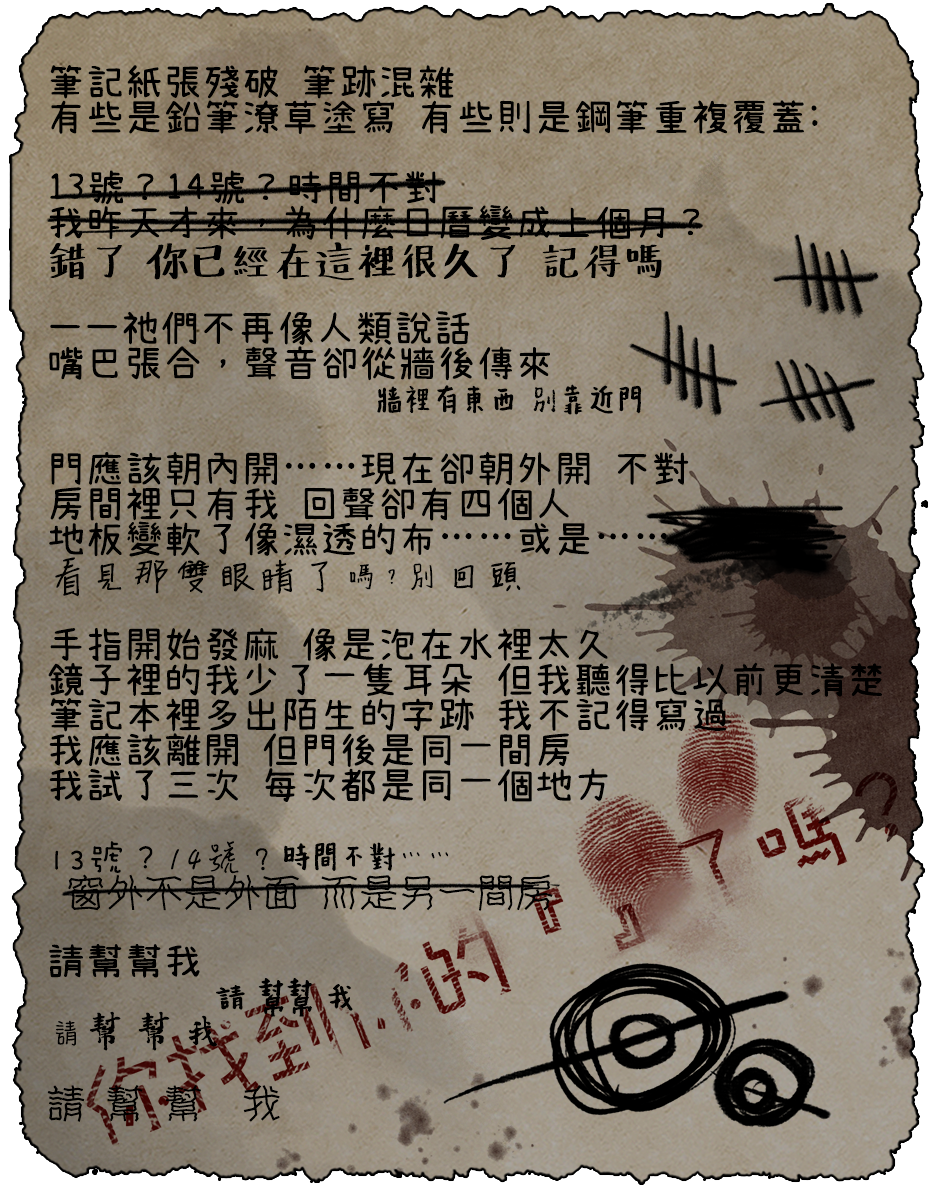 筆記紙張殘破 筆跡混雜
有些是鉛筆潦草塗寫 有些則是鋼筆重複覆蓋:
13號？14號？時間不對
我昨天才來，為什麼日曆變成上個月？
錯了 你已經在這裡很久了 記得嗎
一一祂們不再像人類說話
嘴巴張合，聲音卻從牆後傳來
牆裡有東西 別靠近門
門應該朝內開……現在卻朝外開 不對
房間裡只有我 回聲卻有四個人
地板變軟了像濕透的布……或是……
看見那雙眼睛了嗎?別回頭
手指開始發麻 像是泡在水裡太久
鏡子裡的我少了一隻耳朵 但我聽得比以前更清楚
筆記本裡多出陌生的字跡 我不記得寫過
我應該離開 但門後是同一間房
我試了三次 每次都是同一個地方
13號？14號？時間不對……
窗外不是外面 而是另一間房
請幫幫我
請幫幫我
請幫幫我
請幫幫我
你找到 的「 」了嗎?